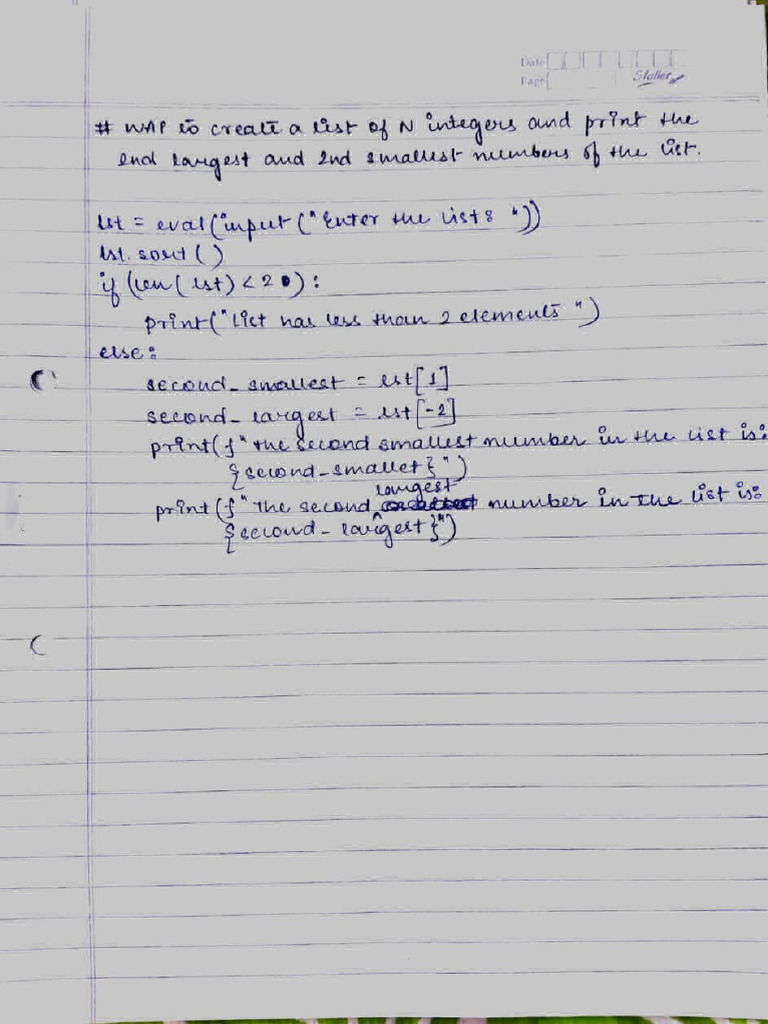 Date
Page
Stollen
# WAP to create a list of N integers and print the
2nd largest and 2nd smallest numbers of the list.
lst = eval(input("Enter the list: "))
lst.sort()
if (len(lst) < 2):
print("List has less than 2 elements")
else:
second_smallest = lst[1]
second_largest = lst[-2]
print(f"The second smallest number in the list is:
{second_smallet}")
largest
print(f"The second number in the list is:
{second_largest}")